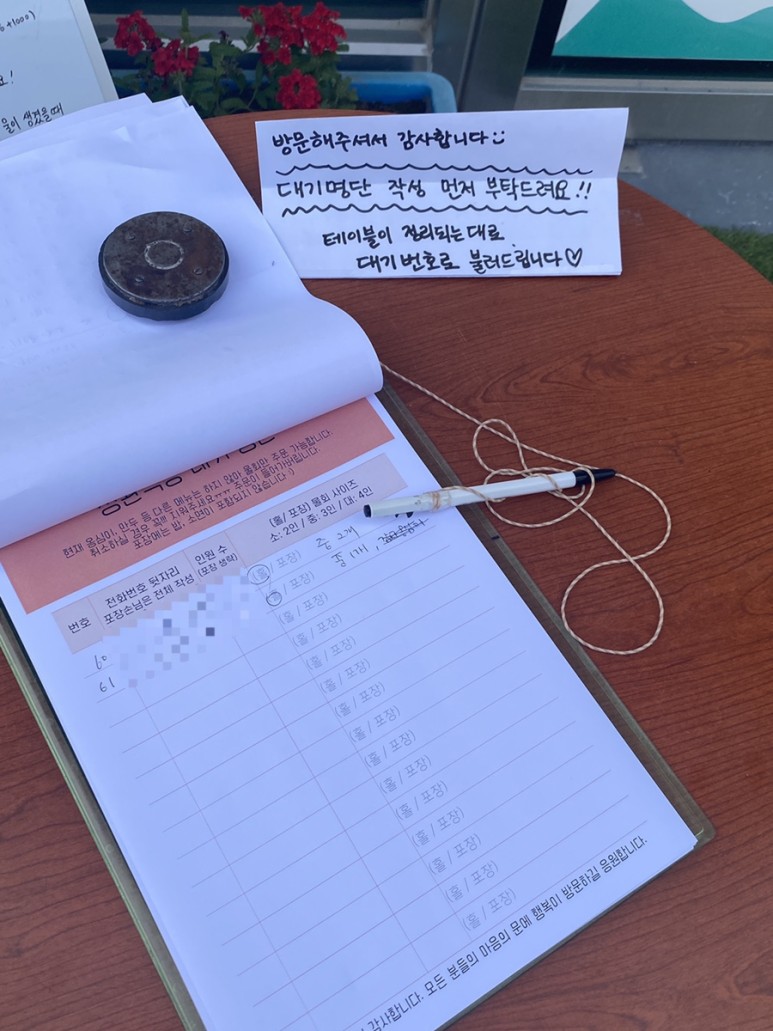 6+1000)
요!
물이 생겼을때
방문해주셔서 감사합니다
대기명단 작성 먼저 부탁드려요!!
테이블이 정리되는대로
대기번호로 불러드립니다♡
현재 옹심이, 만두 등 다른 메뉴는 하지 않아 물회만 주문 가능합니다.
취소하실 경우 꼭!! 지워주세요ㅠㅠ 주문이 들어가버립니다.
포장에는 밥, 소면이 포함되지 않습니다 :)
번호
전화번호 뒷자리
포장손님은 전체 작성
인원 수
(포장 생략)
(홀/ 포장) 물회 사이즈
소: 2인 / 중: 3인 / 대: 4인
60 (홀 / 포장) 중 2개
61 (홀 / 포장) 중 1개,
(홀 / 포장)
(홀 / 포장)
(홀 / 포장)
(홀 / 포장)
(홀 / 포장)
(홀 / 포장)
(홀 / 포장)
(홀 / 포장)
(홀 / 포장)
(홀 / 포장)
(홀 / 포장)
(홀 / 포장)
(홀 / 포장)
감사합니다. 모든 분들의 마음의 문에 행복이 방문하길 응원합니다.